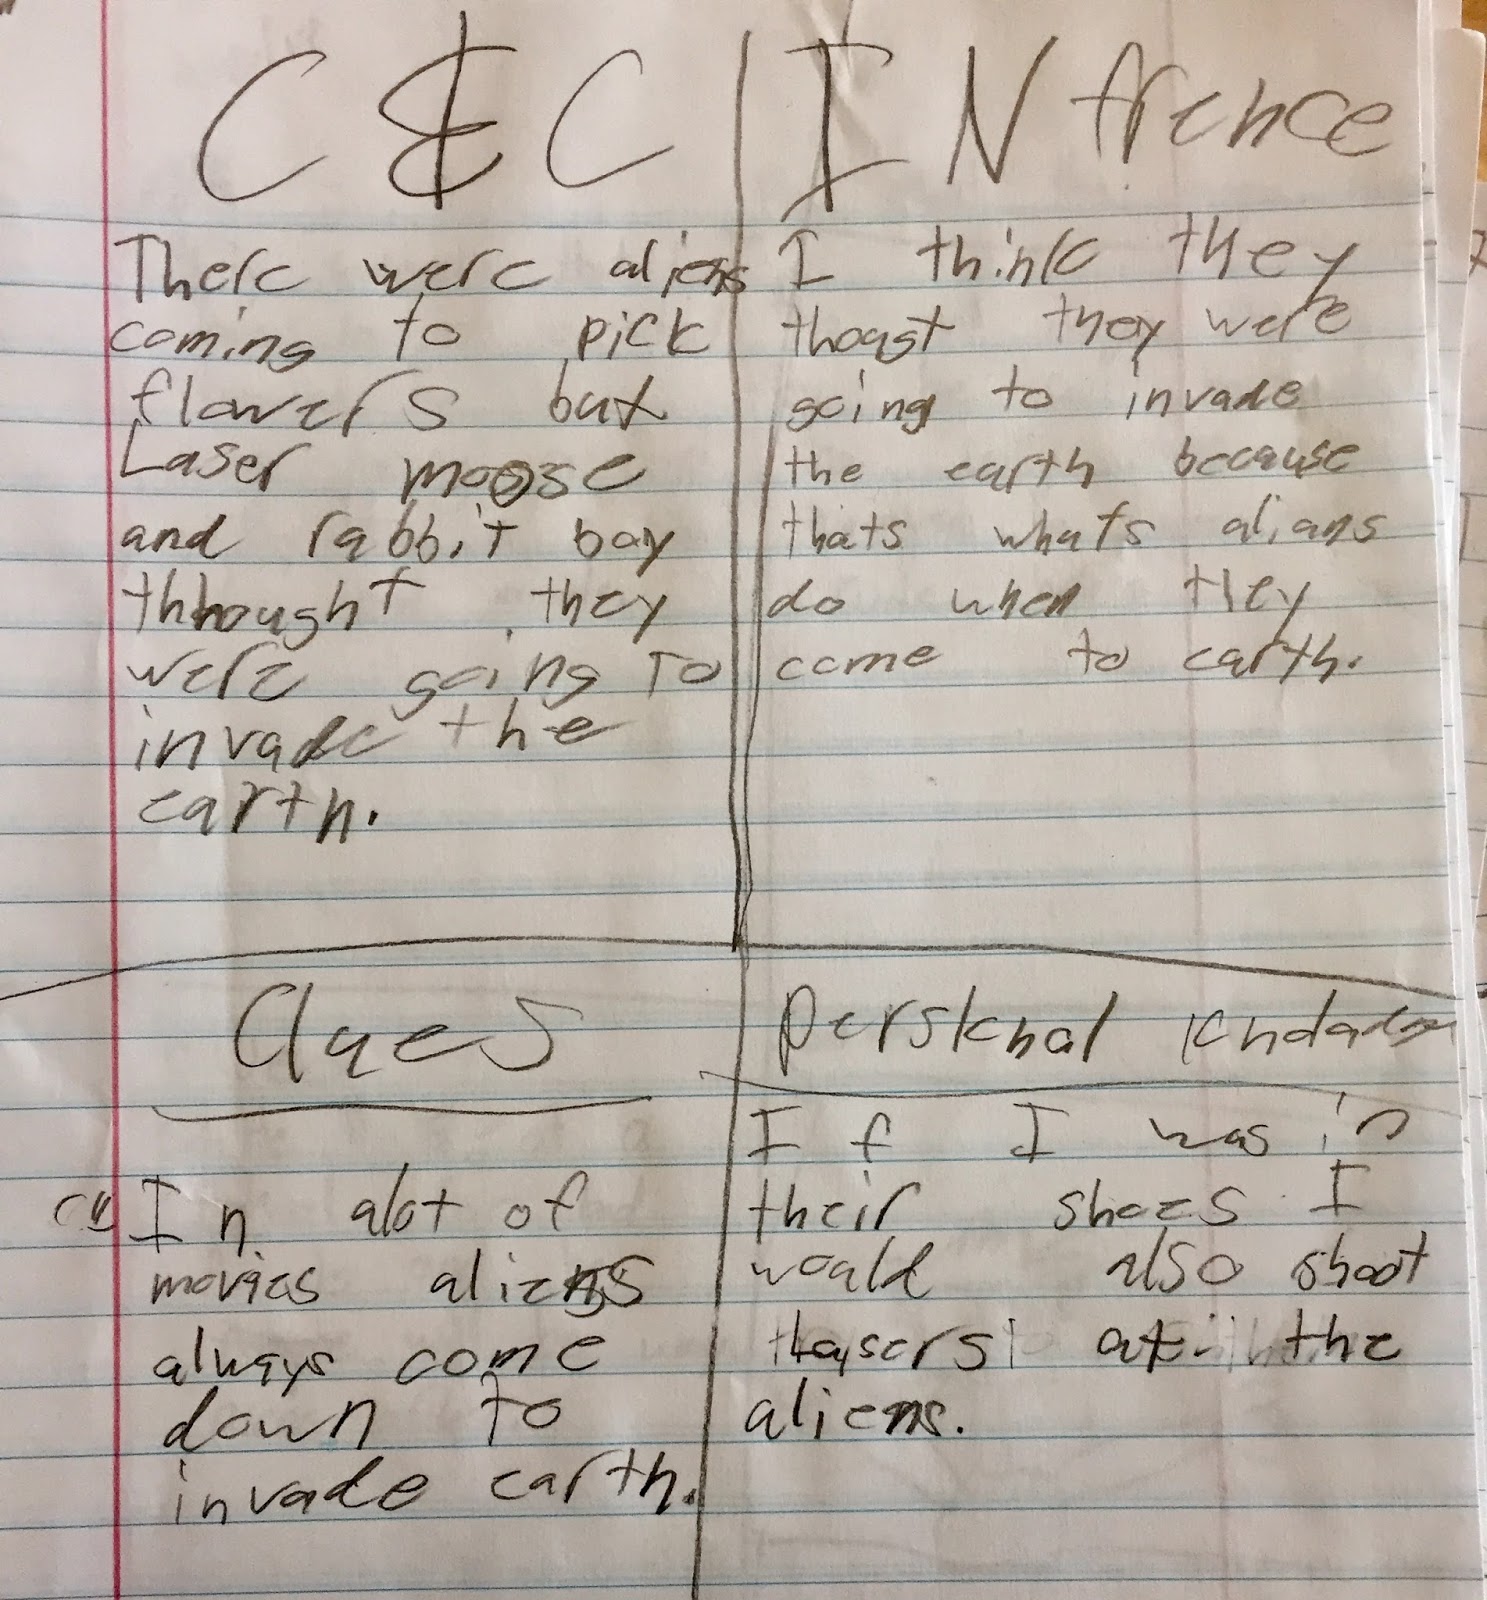 C & C
There were aliens
coming to pick
flowers but
Laser moose
and rabbit boy
thhought they
were going to
invade the
earth.
INfrence
I think they
thougt they were
going to invade
the earth because
thats whats alians
do when they
come to earth.
Clues
In alot of
movies aliens
always come
down to
invade earth.
Persknal
If I was in
their shoes I
would also shoot
at the
aliens.